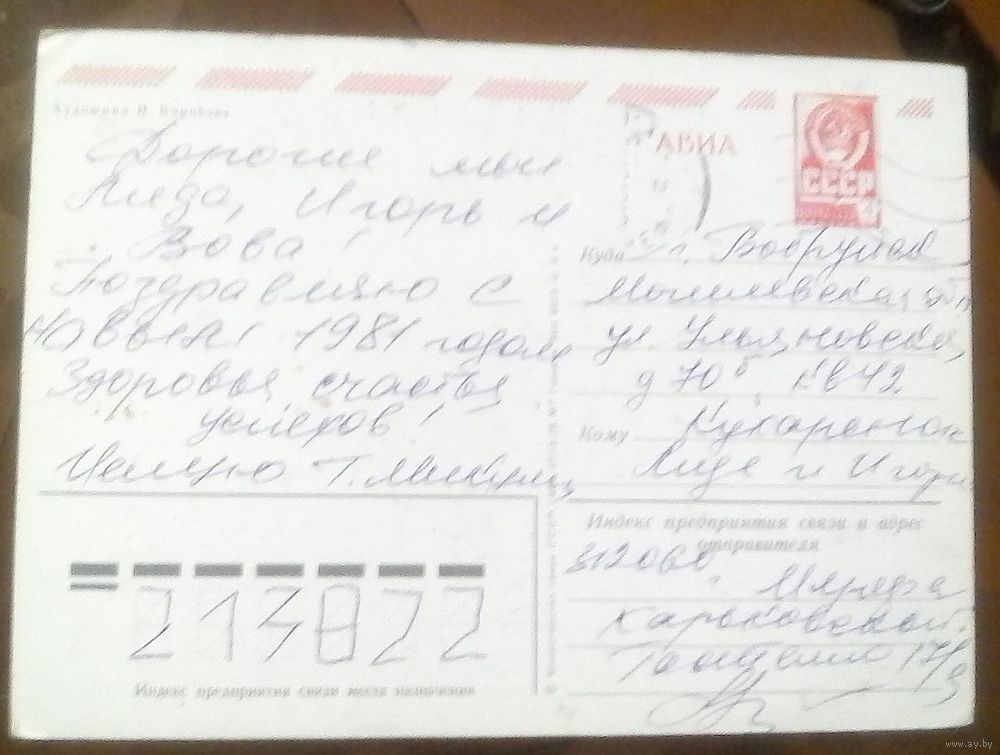 АВИА
СССР
Художник И.
Дорогие мои
Лида, Игорь и
Вова!
Поздравляю с
новым 1981 годом
Здоровья счастья
успехов!
Целую Т.
Куда г. Бобруйск
Могилевская обл
ул. Ульяновская,
д 70б, кв 42
Кому Кухаренок
Лиде и Игорю
Индекс предприятия связи и адрес
отправителя
312060
Харьковской
17/9
213822
Индекс предприятия связи места назначения
www.ay.by